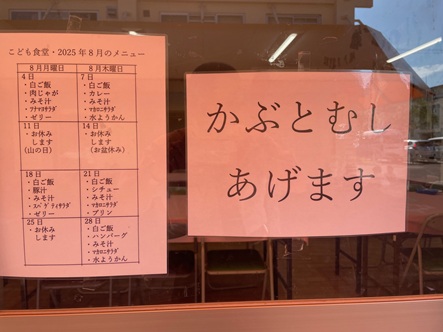 こども食堂・2025年8月のメニュー
8月月曜日 8月木曜日
4日
・白ご飯
・肉じゃが
・みそ汁
・ツナマヨサラダ
・ゼリー
7日
・白ご飯
・カレー
・みそ汁
・マカロニサラダ
・水ようかん
11日
・お休み
します
(山の日)
14日
・お休み
します
(お盆休み)
18日
・白ご飯
・豚汁
・みそ汁
・スパゲティサラダ
・ゼリー
21日
・白ご飯
・シチュー
・みそ汁
・マカロニサラダ
・プリン
25日
・お休み
します
28日
・白ご飯
・ハンバーグ
・みそ汁
・マカロニサラダ
・水ようかん
かぶとむし
あげます